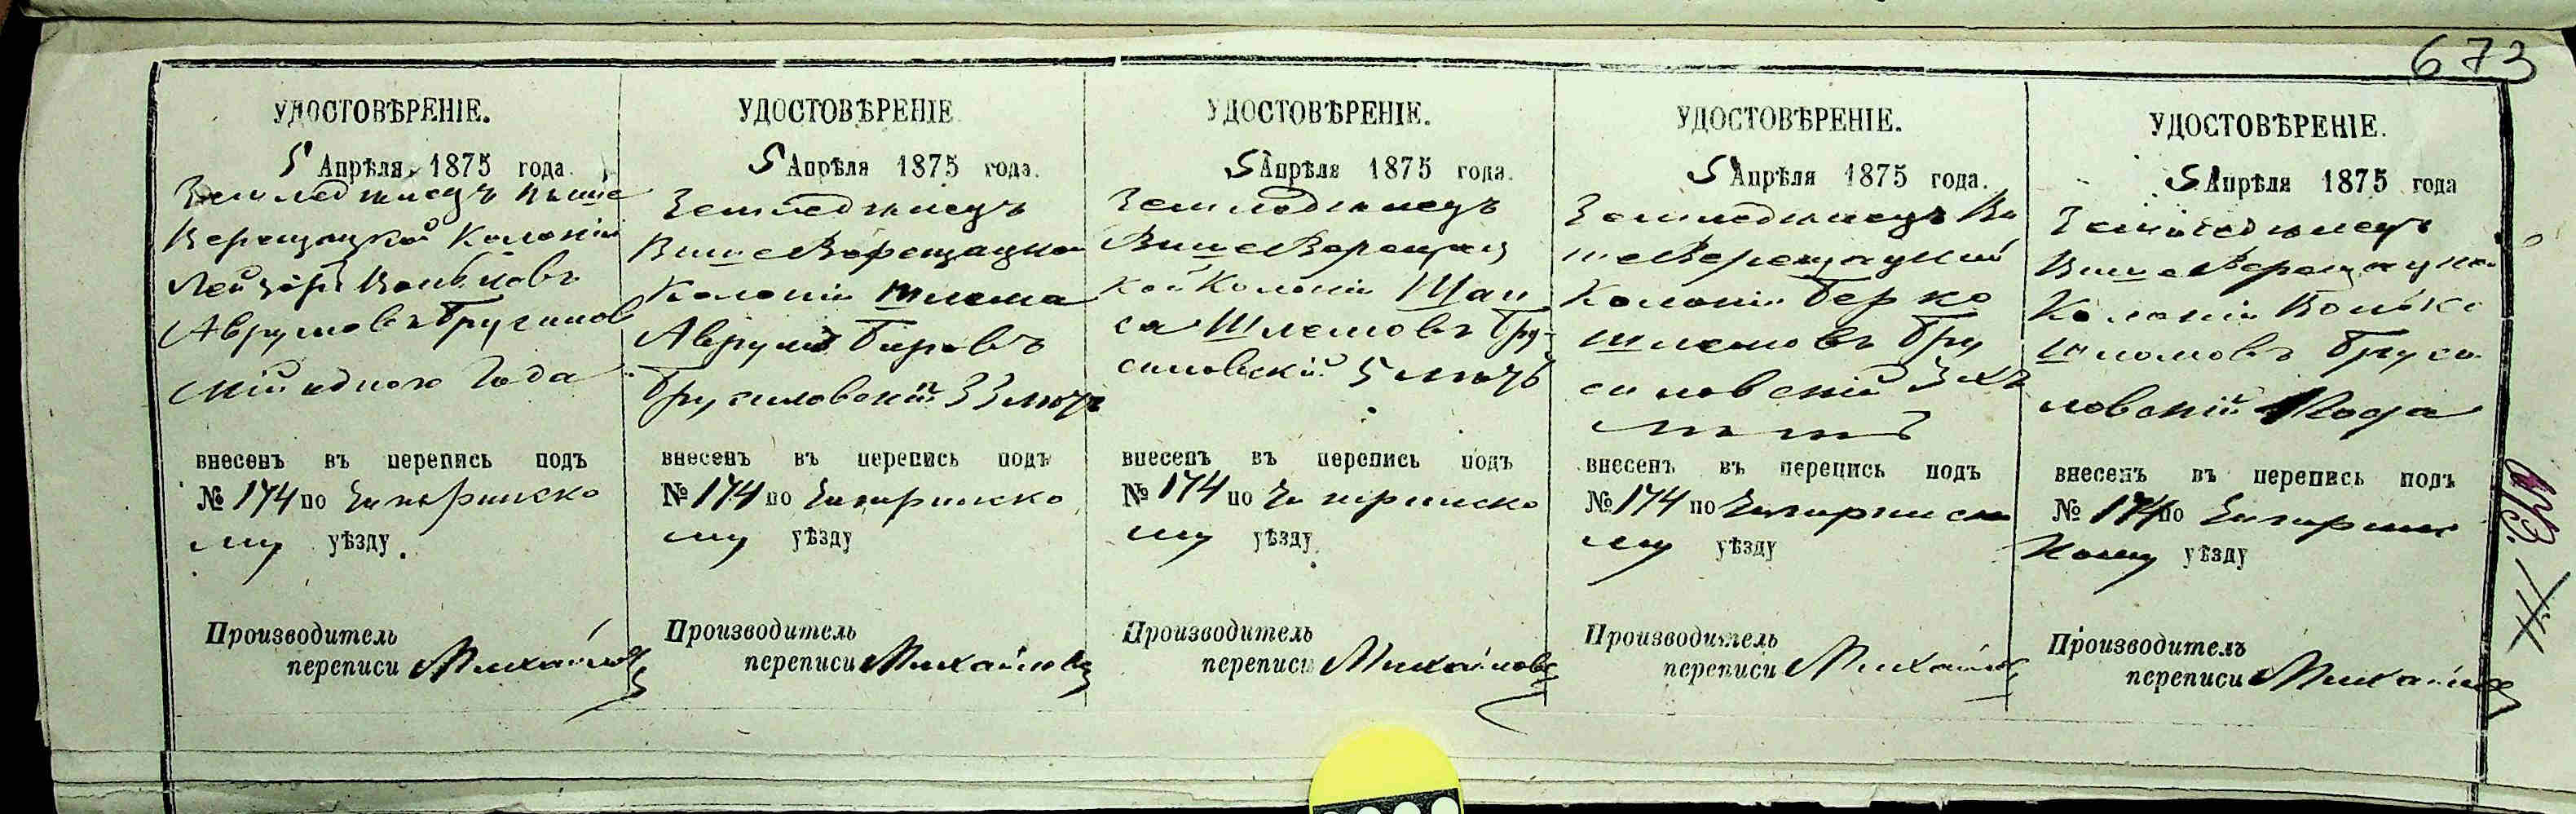 673
УДОСТОВѢРЕНІЕ.
5 Апрѣля 1875 года.
Земледѣлецъ Выше
Верещацкой Колоніи
Лейзоръ Волько въ
Аврумовъ Брусилов
скій одного года
внесенъ въ перепись подъ
№ 174 по Чигиринско
му уѣзду.
Производитель
переписи Михайловъ
УДОСТОВѢРЕНІЕ
5 Апрѣля 1875 года.
Земледѣлецъ
ВышеВерещацкой
Колоніи Шлема
Аврумъ Беровъ
Брусиловскій 33 лѣтъ
внесенъ въ перепись подъ
№ 174 по Чигиринско
му уѣзду
Производитель
переписи Михайловъ
УДОСТОВѢРЕНІЕ.
5 Апрѣля 1875 года.
Земледѣлецъ
ВышеВерещац
кой Колоніи
Шлемовъ Бру-
силовскій 5 лѣтъ
внесенъ въ перепись подъ
№ 174 по Чигиринско
му уѣзду.
Производитель
переписи Михайловъ
УДОСТОВѢРЕНІЕ.
5 Апрѣля 1875 года.
Земледѣлецъ Вы
шеВерещацкой
Колоніи Берко
Шлемовъ Бру
силовскій 3хъ
лѣтъ
внесенъ въ перепись подъ
№ 174 по Чигиринско
му уѣзду
Производитель
переписи Михайловъ
УДОСТОВѢРЕНІЕ.
5 Апрѣля 1875 года
Земледѣлецъ
ВышеВерещацкой
Колоніи Волько
Шломовъ Бруси
ловскій 1 года
внесенъ въ перепись подъ
№ 174 по Чигиринс
кому уѣзду
Производитель
переписи Михайловъ